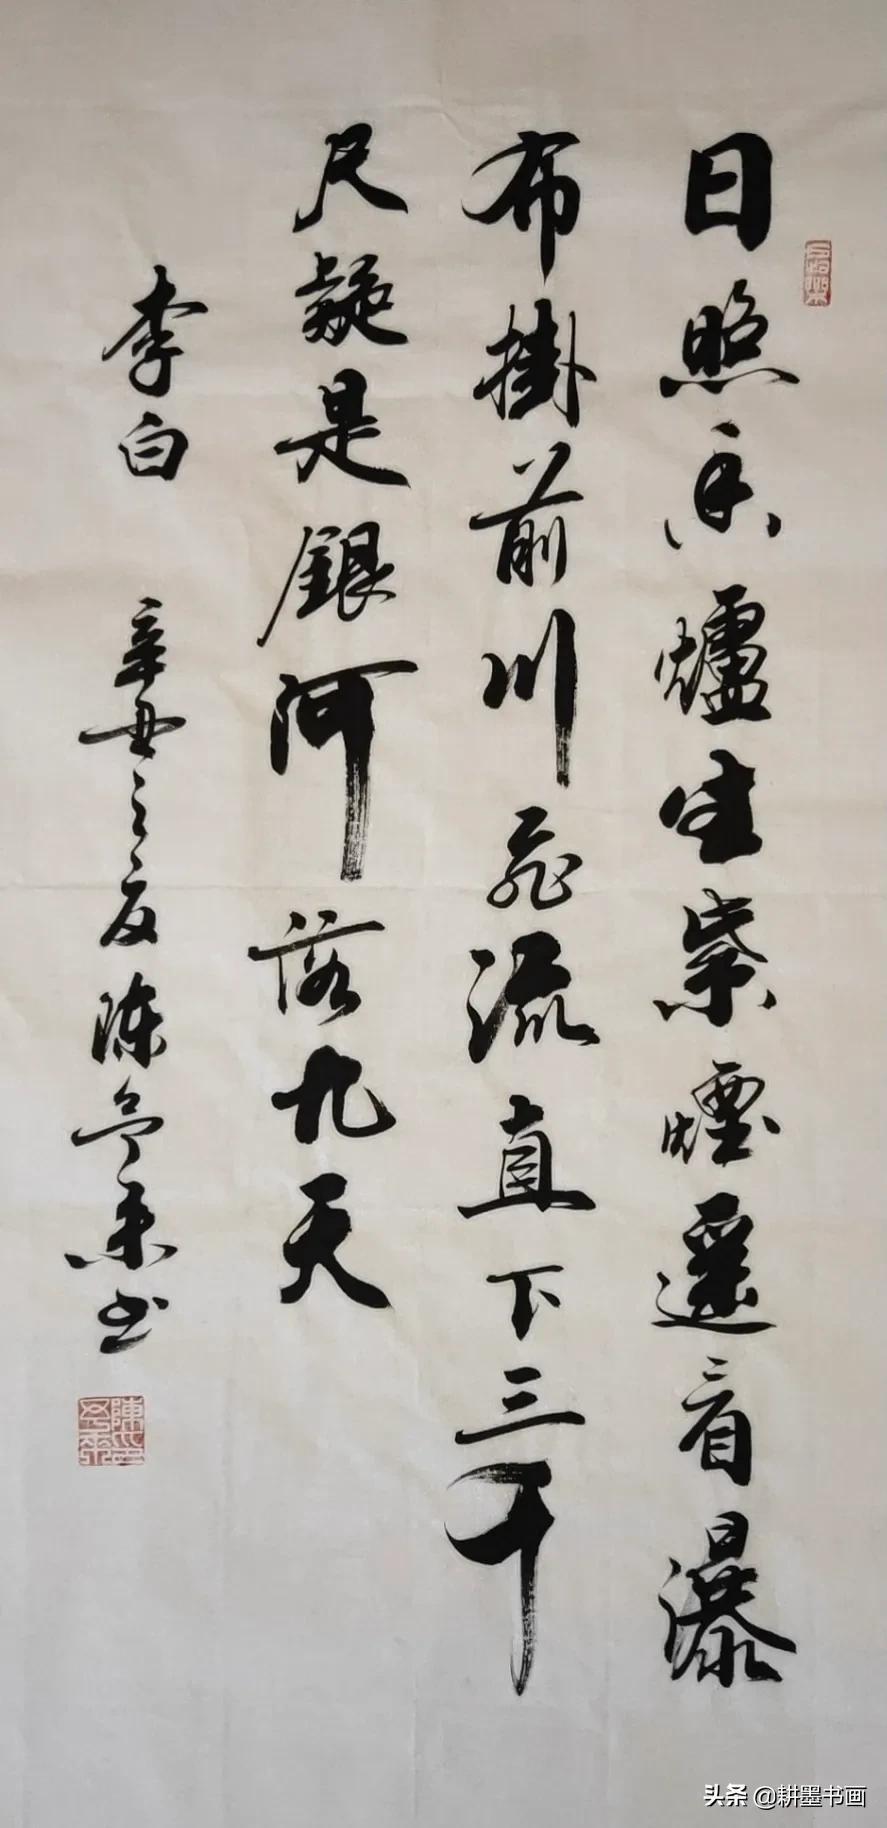 日照香爐生紫煙遥看瀑
布掛前川飛流直下三千
尺疑是銀河落九天
李白 辛丑之夏陳書
头条 @耕墨书画